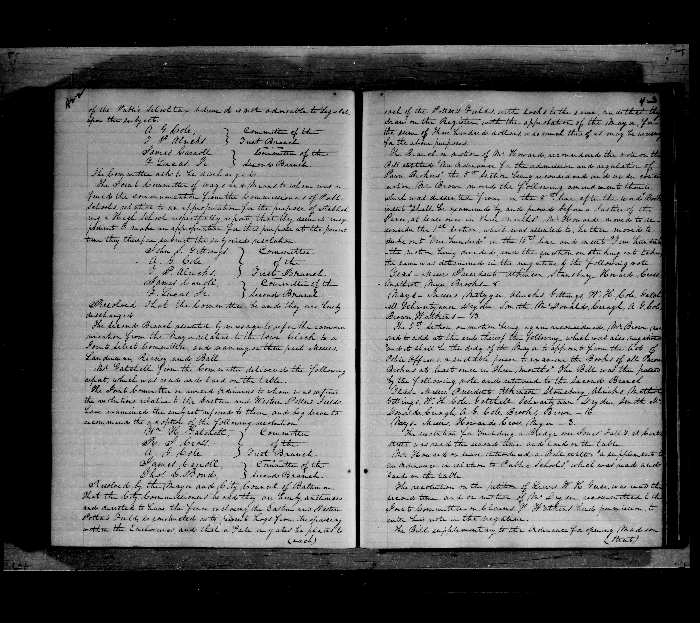 of the Public School tax, believe it is not advisable to legislate
upon the subject.
A. G. Cole, } Committee of the
} First Branch
James Carroll } Committee of the
F. Lucas Jr } Second Branch.
The Committee asks to be discharged.
The Joint Committee of ways & Means to whom was re
ferred the communication from the Commissioners of Public
Schools, relative to an appropriation for the purpose of establish
ing a High School respectfully report that they deem it inex
pedient to make an appropriation for this purpose at the present
time they therefore submit the subjoined resolution.
John S. Gittings } Committee
A. G. Cole } of the
} First Branch.
} Committee of the
F. Lucas Jr } Second Branch
Resolved that the Committee be and they are hereby
discharged.
The second Branch assented by message to refer the commu
nication from the Mayor relative to the town clock to a
Joint select Committee, and naming on their part Messrs
and Ball.
Mr Gatchell from the Committee delivered the following
report, which was read and laid on the table.
The Joint Committee on unused to whom was referred
the resolutions relative to the Eastern and Western Potters Fields,
have examined the subject referred to them, and beg leave to
recommend the adoption of the following resolution.
Wm H. Gatchell, } Committee
} of the
A. G. Cole } First Branch.
James Carroll } Committee of the
Thos C. Bond, } Second Branch.
Resolved by the Mayor and City Council of Baltimore,
that the City Commissioners be and they are hereby authorized
and directed to have the fence enclosing the Eastern and Western
Potters Field, so constructed as to prevent Hogs from
within the enclosures and that a Gate
(each)
each of the Potters Fields, with locks to the same, and that they
draw on the Register, with the approbation of the Mayor for
the sum of Five hundred dollars, or so much thereof as may be necessary
for the above purposes.
The Branch on motion of Mr Howard, reconsidered the vote on the
Bill entitled An Ordinance for the admission and regulation of
Pawn Brokers, the 5th section being reconsidered and under consid
eration, Mr Brown moved the following amendment thereto
which was dissented from, in the 8th line after the word
ment "shall be examined by and proved before a Justice of the
Peace, at least once in three months" Mr Howard moved to re
consider the 1st section, which was assented to, he then moved to
strike out "One hundred" in the 15th line and insert
the motion being divided and the question on striking out taken,
the same was determined in the negative by the following vote
Yeas - Messrs President Atkinson, Stansbury, Howard,
Brooks 8
Nays - Messrs Metzger, Gittings, W. H. Cole, Gatch
ell, Schwartzauer, Snyder, Smith, McDonald, Creagh, A. G. Cole,
Brown, Watkins - 13
The 5th section on motion being again reconsidered, Mr Brown moved
to add at the end thereof the following, which was also negatived
and it shall be the duty of the Mayor to appoint from the list of
Police Officers, a suitable person to examine the Books of all Pawn
Brokers at least once in three months" The Bill was then passed
by the following vote and returned to the second Branch
Yeas - Messrs President Atkinson, Stansbury,
Gittings, W. H. Cole, Gatchell, Schwartzauer, Snyder, Smith, Mc
Donald, Creagh, A. G. Cole, Brooks, Brown - 16
Nays - Messrs Howard, - 3.
The resolution for building a Bridge over Jones' Falls at
street was read the second time and laid on the table.
Mr Howard on leave introduced a Bill entitled "a supplement to
an ordinance in relation to Public Schools", which was read and
laid on the table
The resolution on the petition of Lewis W. H. was read the
second time and on motion of Mr Snyder, recommitted to the
Joint Committee on Claims, Mr Watkins had permission, to
enter his vote in the negative.
The Bill supplementary to the ordinance for opening Madison
(Street)